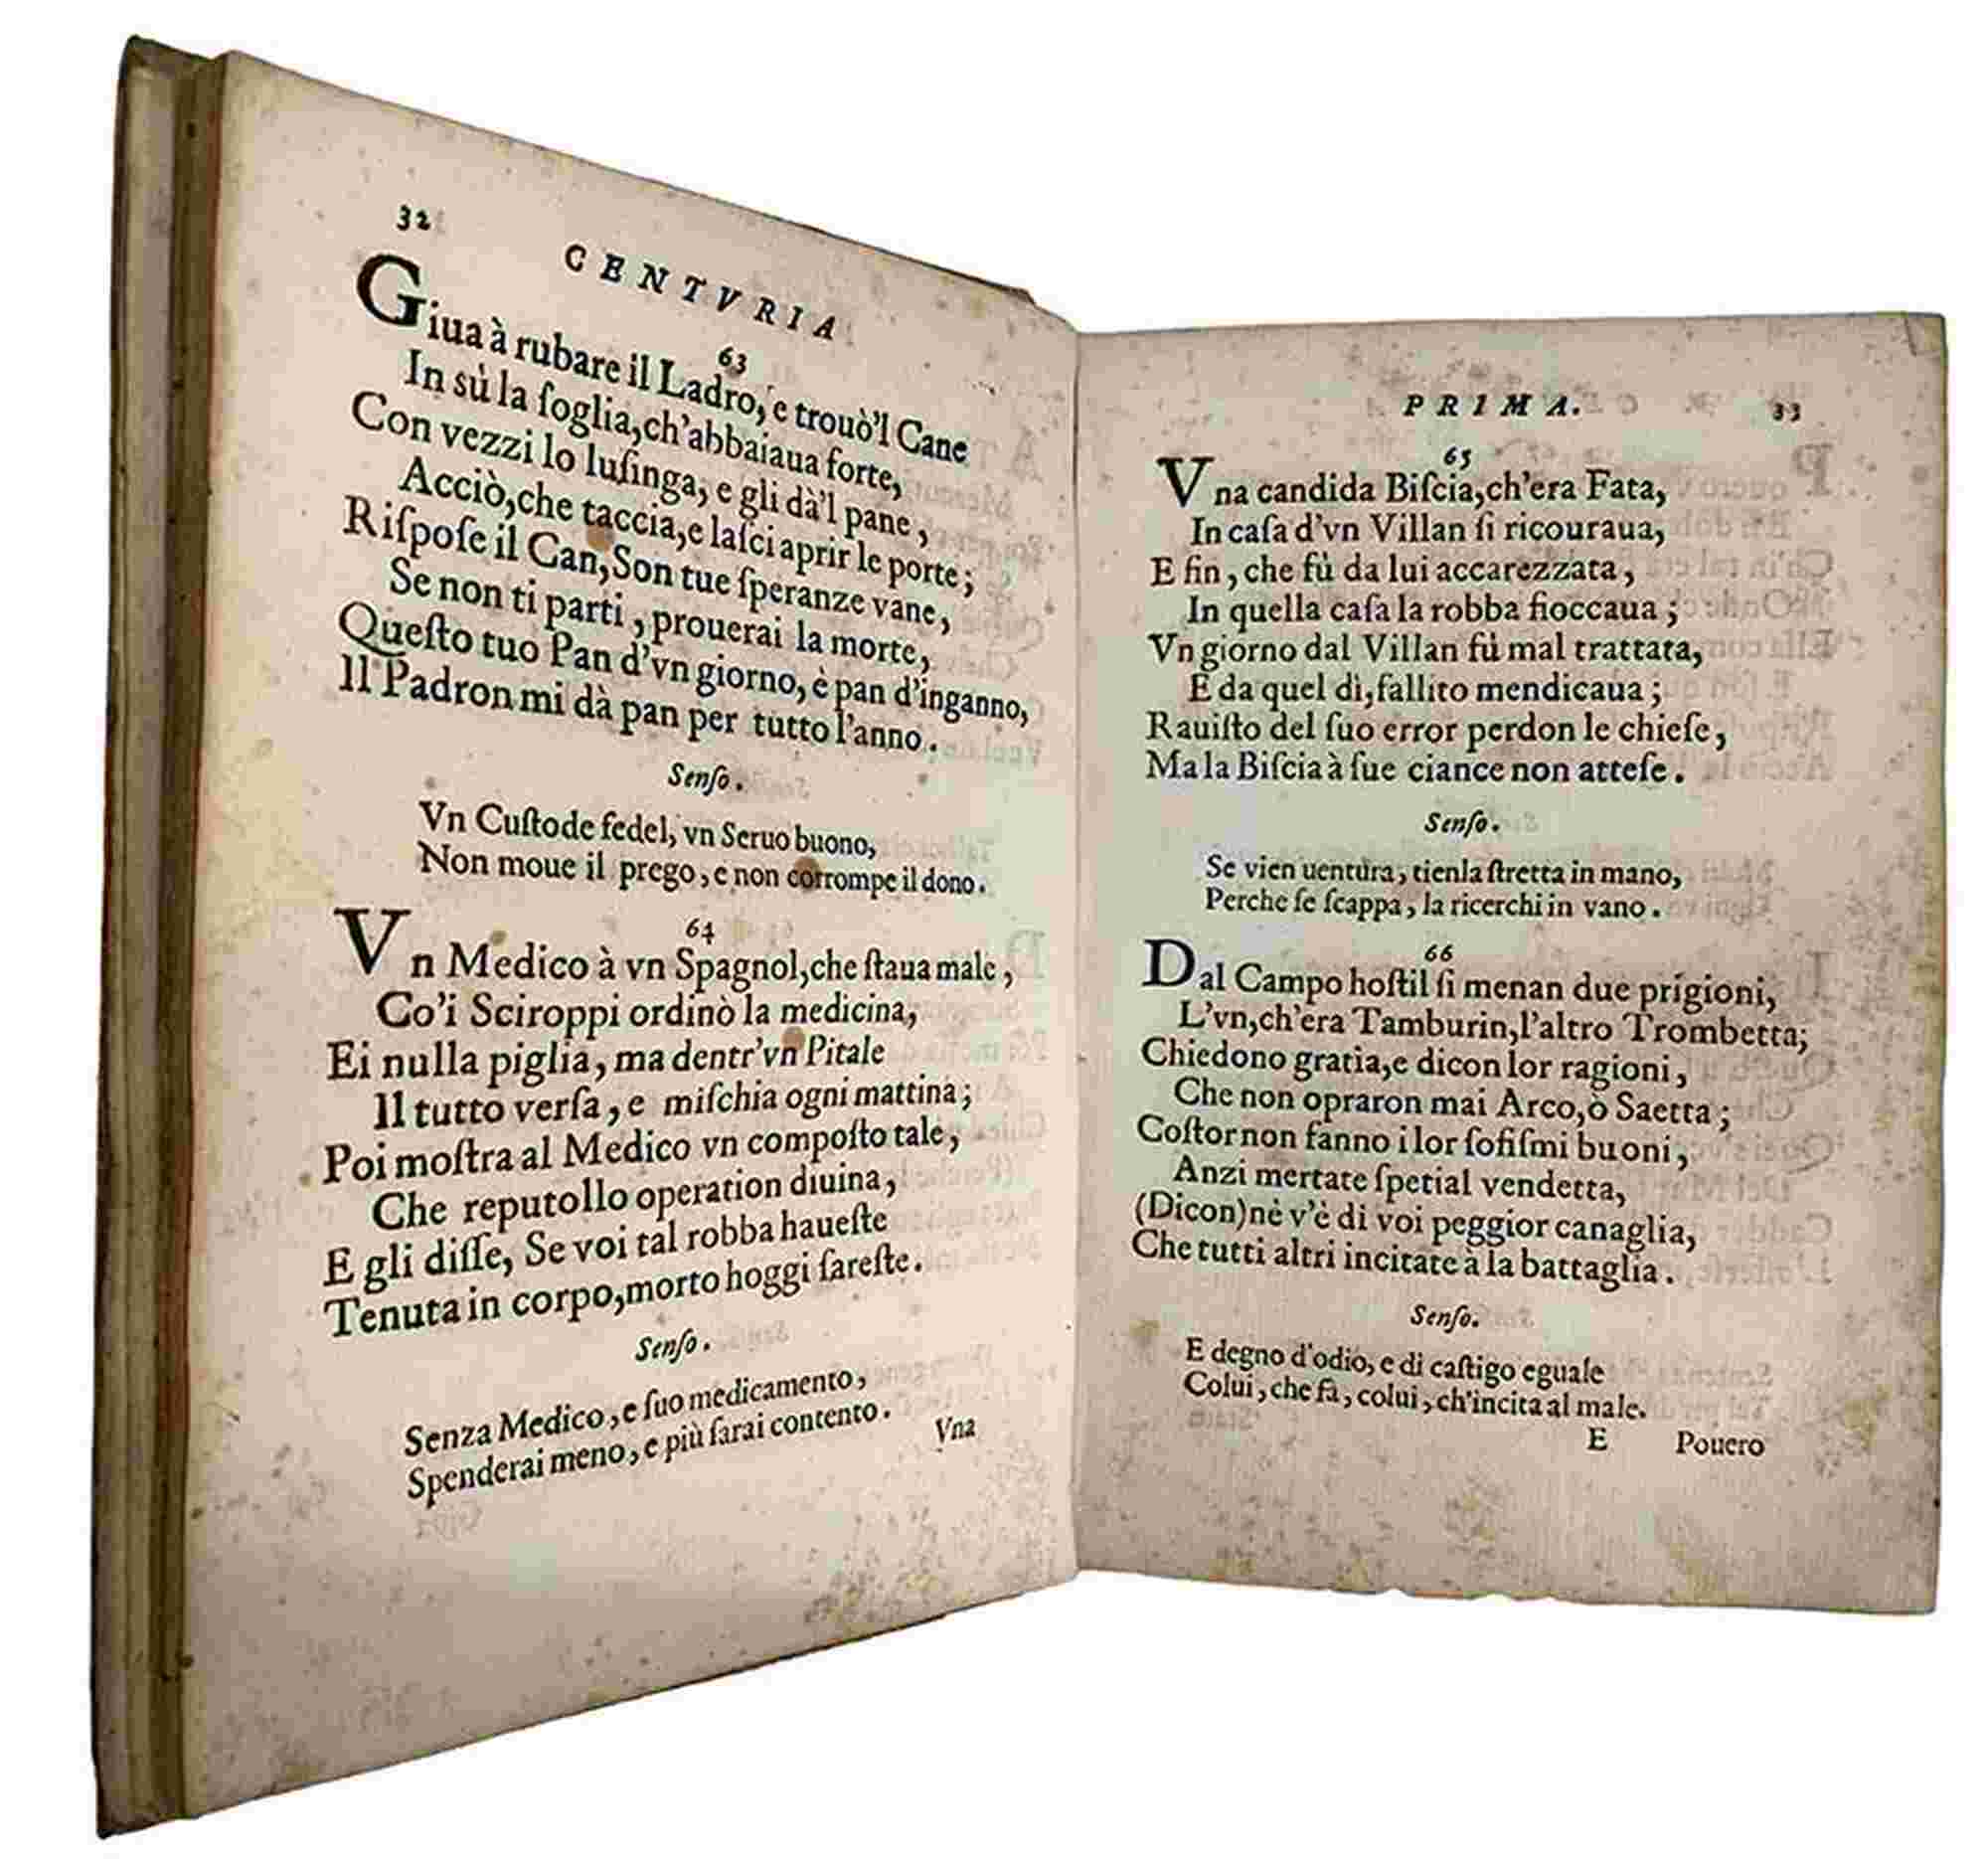 32
CENTVRIA
63
Giua à rubare il Ladro, e trouò'l Cane
In sù la ſoglia,ch'abbaiaua forte,
Con vezzi lo luſinga, e gli dà'l pane,
Acciò,che taccia,e laſci aprir le porte;
Riſpoſe il Can,Son tue ſperanze vane,
Se non ti parti, prouerai la morte,
Queſto tuo Pan d'vn giorno, è pan d'inganno,
Il Padron mi dà pan per tutto l'anno.
Senſo.
Vn Cuſtode fedel, vn Seruo buono,
Non moue il prego, e non corrompe il dono.
64
Vn Medico à vn Spagnol,che ſtaua male,
Co'i Sciroppi ordinò la medicina,
Ei nulla piglia, ma dentr'vn Pitale
Il tutto verſa, e miſchia ogni mattina;
Poi moſtra al Medico vn compoſto tale,
Che reputollo operation diuina,
E gli diſſe, Se voi tal robba haueſte
Tenuta in corpo,morto hoggi ſareſte.
Senſo.
Senza Medico, e ſuo medicamento,
Spenderai meno, e più ſarai contento.
Vna
PRIMA.
33
65
Vna candida Biſcia,ch'era Fata,
In caſa d'vn Villan ſi ricouraua,
E fin, che fù da lui accarezzata,
In quella caſa la robba fioccaua;
Vn giorno dal Villan fù mal trattata,
E da quel dì,fallito mendicaua;
Rauiſto del ſuo error perdon le chieſe,
Ma la Biſcia à ſue ciance non atteſe.
Senſo.
Se vien uentura, tienla ſtretta in mano,
Perche ſe ſcappa, la ricerchi in vano.
66
Dal Campo hoſtil ſi menan due prigioni,
L'vn,ch'era Tamburin,l'altro Trombetta;
Chiedono gratia,e dicon lor ragioni,
Che non opraron mai Arco,ò Saetta;
Coſtor non fanno i lor ſofiſmi buoni,
Anzi mertate ſpetial vendetta,
(Dicon)nè v'è di voi peggior canaglia,
Che tutti altri incitate à la battaglia.
Senſo.
E degno d'odio, e di caſtigo eguale
Colui, che fà, colui, ch'incita al male.
E
Pouero